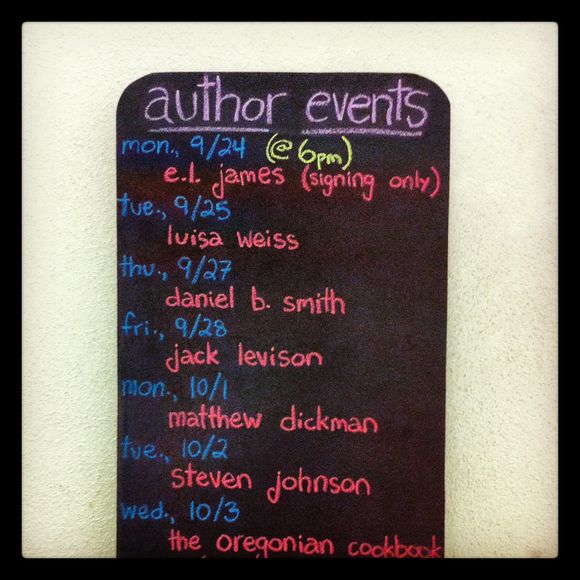 author events
mon., 9/24 (@ 6pm)
e.l. james (signing only)
tue., 9/25
luisa weiss
thu., 9/27
daniel b. smith
fri., 9/28
jack levison
mon., 10/1
matthew dickman
tue., 10/2
steven johnson
wed., 10/3
the oregonian cookbook